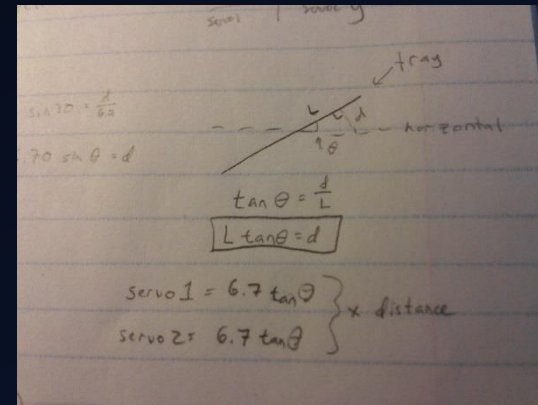 servo1
tray
L
d
horizontal
θ
.70 sin θ = d
tan θ = d/L
L tanθ = d
servo 1 = 6.7 tanθ
servo 2 = 6.7 tanθ
x distance